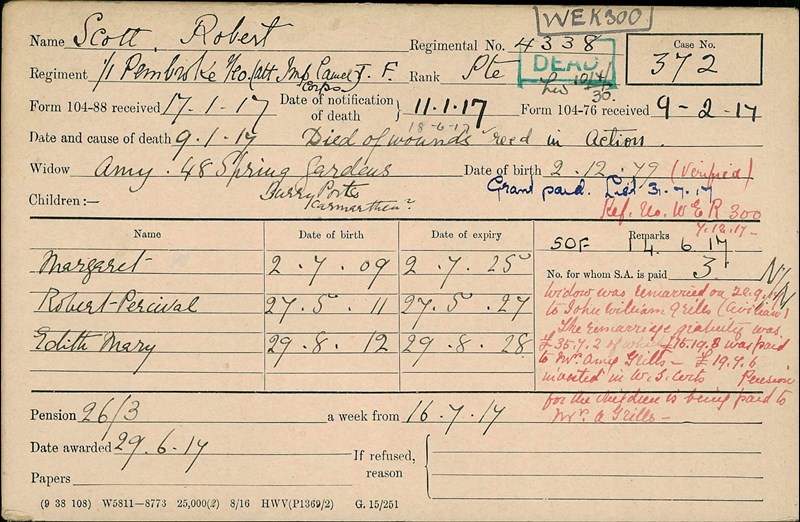 WEK300
Name Scott. Robert Regimental No. 4338 Case No.
DEAD 372
Regiment 1/1 Pembroke Yeo. (att Imp Camel Corps) T. F. Rank Pte 10/4/30.
Form 104-88 received 17.1.17 Date of notification of death } 11.1.17 Form 104-76 received 9-2-17
18-6-17
Date and cause of death 9.1.17 Died of wounds recd in Action.
Widow Amy. 48 Spring Gardens Date of birth 2.12.79 (Verified)
Burry Port Carmarthen. Grant paid. List 31.7.17
Children:— Ref. No. W E R 300
7.12.17-
Name Date of birth Date of expiry Remarks
SOF 14.6.17
Margaret 2.7.09 2.7.25 No. for whom S.A. is paid 3.
Robert Percival 27.5.11 27.5.27
Edith Mary 29.8.12 29.8.28
Widow was remarried on
to John William Grills (Civilian)
The remarriage gratuity was
£35.7.2 of which £16.19.8 was paid
to Mrs. Amy Grills — £19.7.6
invested in W. S. Certs Pension
for the children is being paid to
Mrs. A Grills —
Pension 26/3 a week from 16.7.17
Date awarded 29.6.17 If refused, reason {
Papers
(9 38 108) W5811—8773 25,000(2) 8/16 HWV(P1369/2) G. 15/251